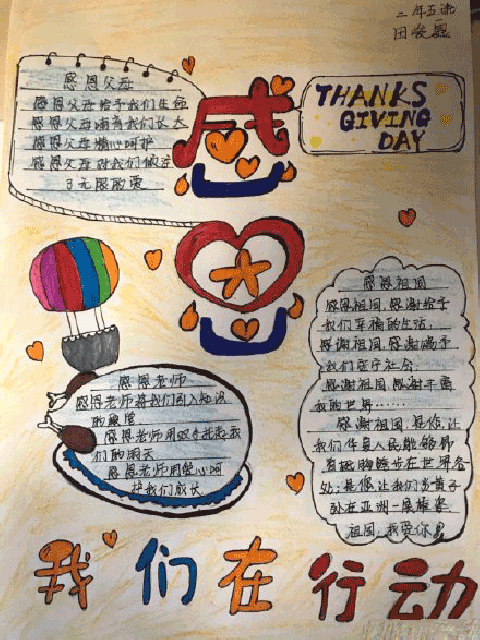 三年五班
感恩
THANKS
GIVING
DAY
感恩父母
感恩父母给予我们生命
感恩父母哺育我们长大
感恩父母精心呵护
感恩父母对我们倾注
了无限的爱
感恩老师
感恩老师将我们引入知识
的殿堂
感恩老师用双手托起我
们的明天
感恩老师用爱心呵
护我们成长
感恩祖国
感恩祖国,感谢给予
我们幸福的生活;
感谢祖国,感谢赐予
我们安宁社会
感谢祖国,感谢
我的世界……
感谢祖国,是你,让
我们华夏人民能够
在世界各
处;是你让我们炎黄子
孙在亚洲一展雄姿
祖国,我爱你
我们在行动